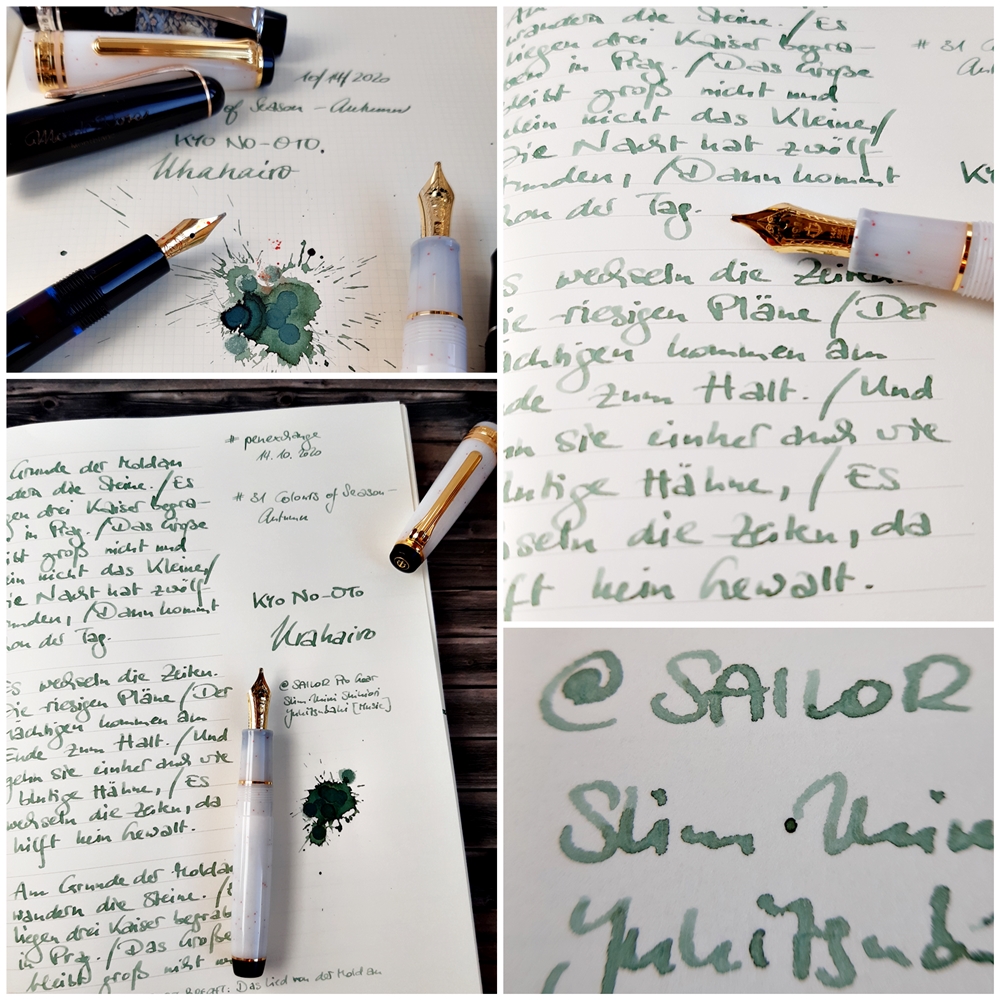 10/14/2020
of Season - Autumn
KYO NO-OTO.
Urahairo
wandern die Steine. / Es
liegen drei Kaiser begra-
ben in Prag. / Das Große
bleibt groß nicht und
klein nicht das Kleine /
Die Nacht hat zwölf
tunden, / Dann kommt
hon der Tag.
s wechseln die Zeiten
ie riesigen Pläne / Der
ächtigen kommen am
de zum Halt. / Und
hn sie einher auch wie
lutige Hähne, / Es
seln die Zeiten, da
ft kein Gewalt.
# 31 C
Au
KY
Grunde der Moldau
ndern die Steine. / Es
gen drei Kaiser begra-
in Prag. / Das Große
ibt groß nicht und
ein nicht das Kleine /
ie Nacht hat zwölf
unden, / Dann kommt
hon der Tag.
Es wechseln die Zeiten.
Die riesigen Pläne / Der
Mächtigen kommen am
Ende zum Halt. / Und
gehn sie einher auch wie
blutige Hähne, / Es
wechseln die Zeiten, da
hilft kein Gewalt.
Am Grunde der Moldau
wandern die Steine. /
liegen drei Kaiser begrab
in Prag. / Das Große
bleibt groß nicht
# penexchange
14. 10. 2020
# 31 Colours of Season -
Autumn
KYO NO-OTO
Urahairo
@ SAILOR Pro Gear
Slim Mini Shikiori
Yukitsubaki [Music]
BRECHT: Das Lied von der Moldau
@ SAILOR
Slim Mini
Yukitsubaki